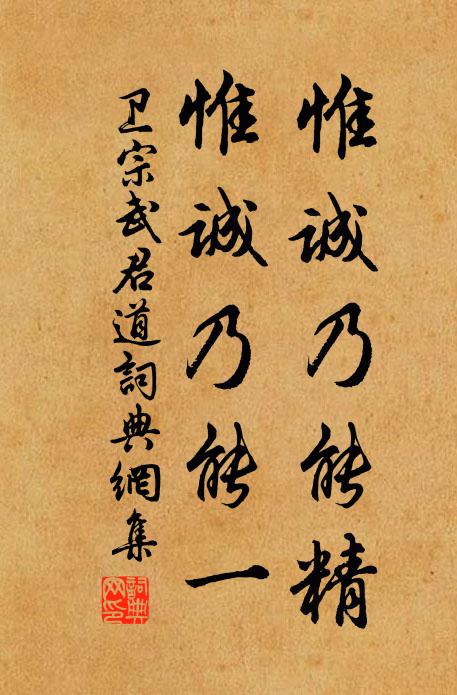 惟誠乃能精
惟誠乃能一
卫宗武君道詞典網集
詞典
网印